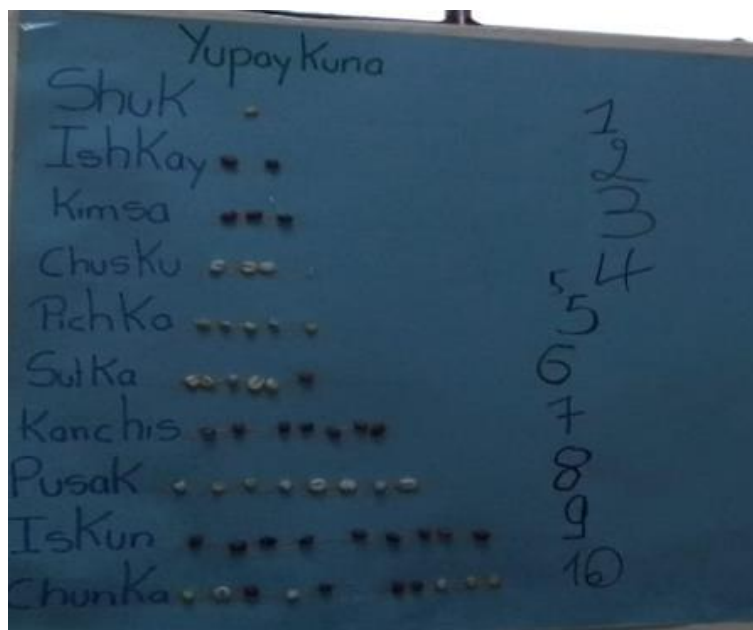 Yupay Kuna
Shuk 1
Ishkay 2
Kimsa 3
Chusku 4
Pichka 5 5
Sutka 6
Kanchis 7
Pusak 8
Iskun 9
Chunka 10